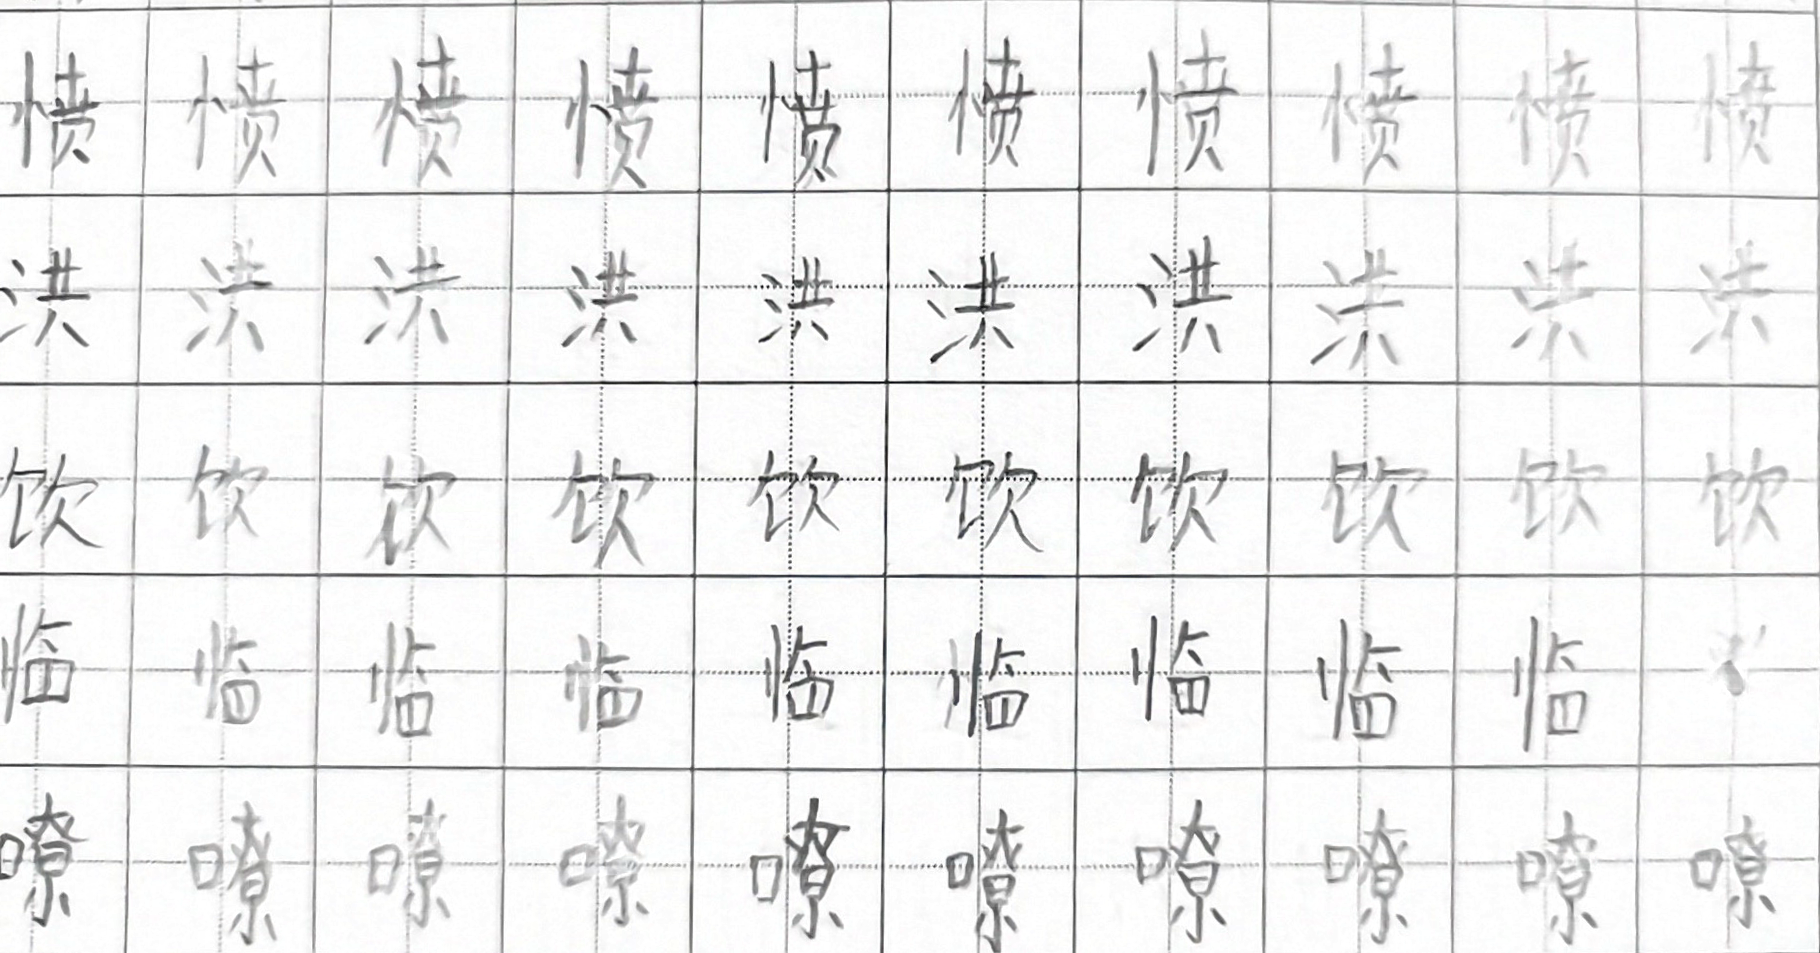 愤愤愤愤愤愤愤愤愤愤
洪洪洪洪洪洪洪洪洪洪
饮饮饮饮饮饮饮饮饮饮
临临临临临临临临临
嘹嘹嘹嘹嘹嘹嘹嘹嘹嘹